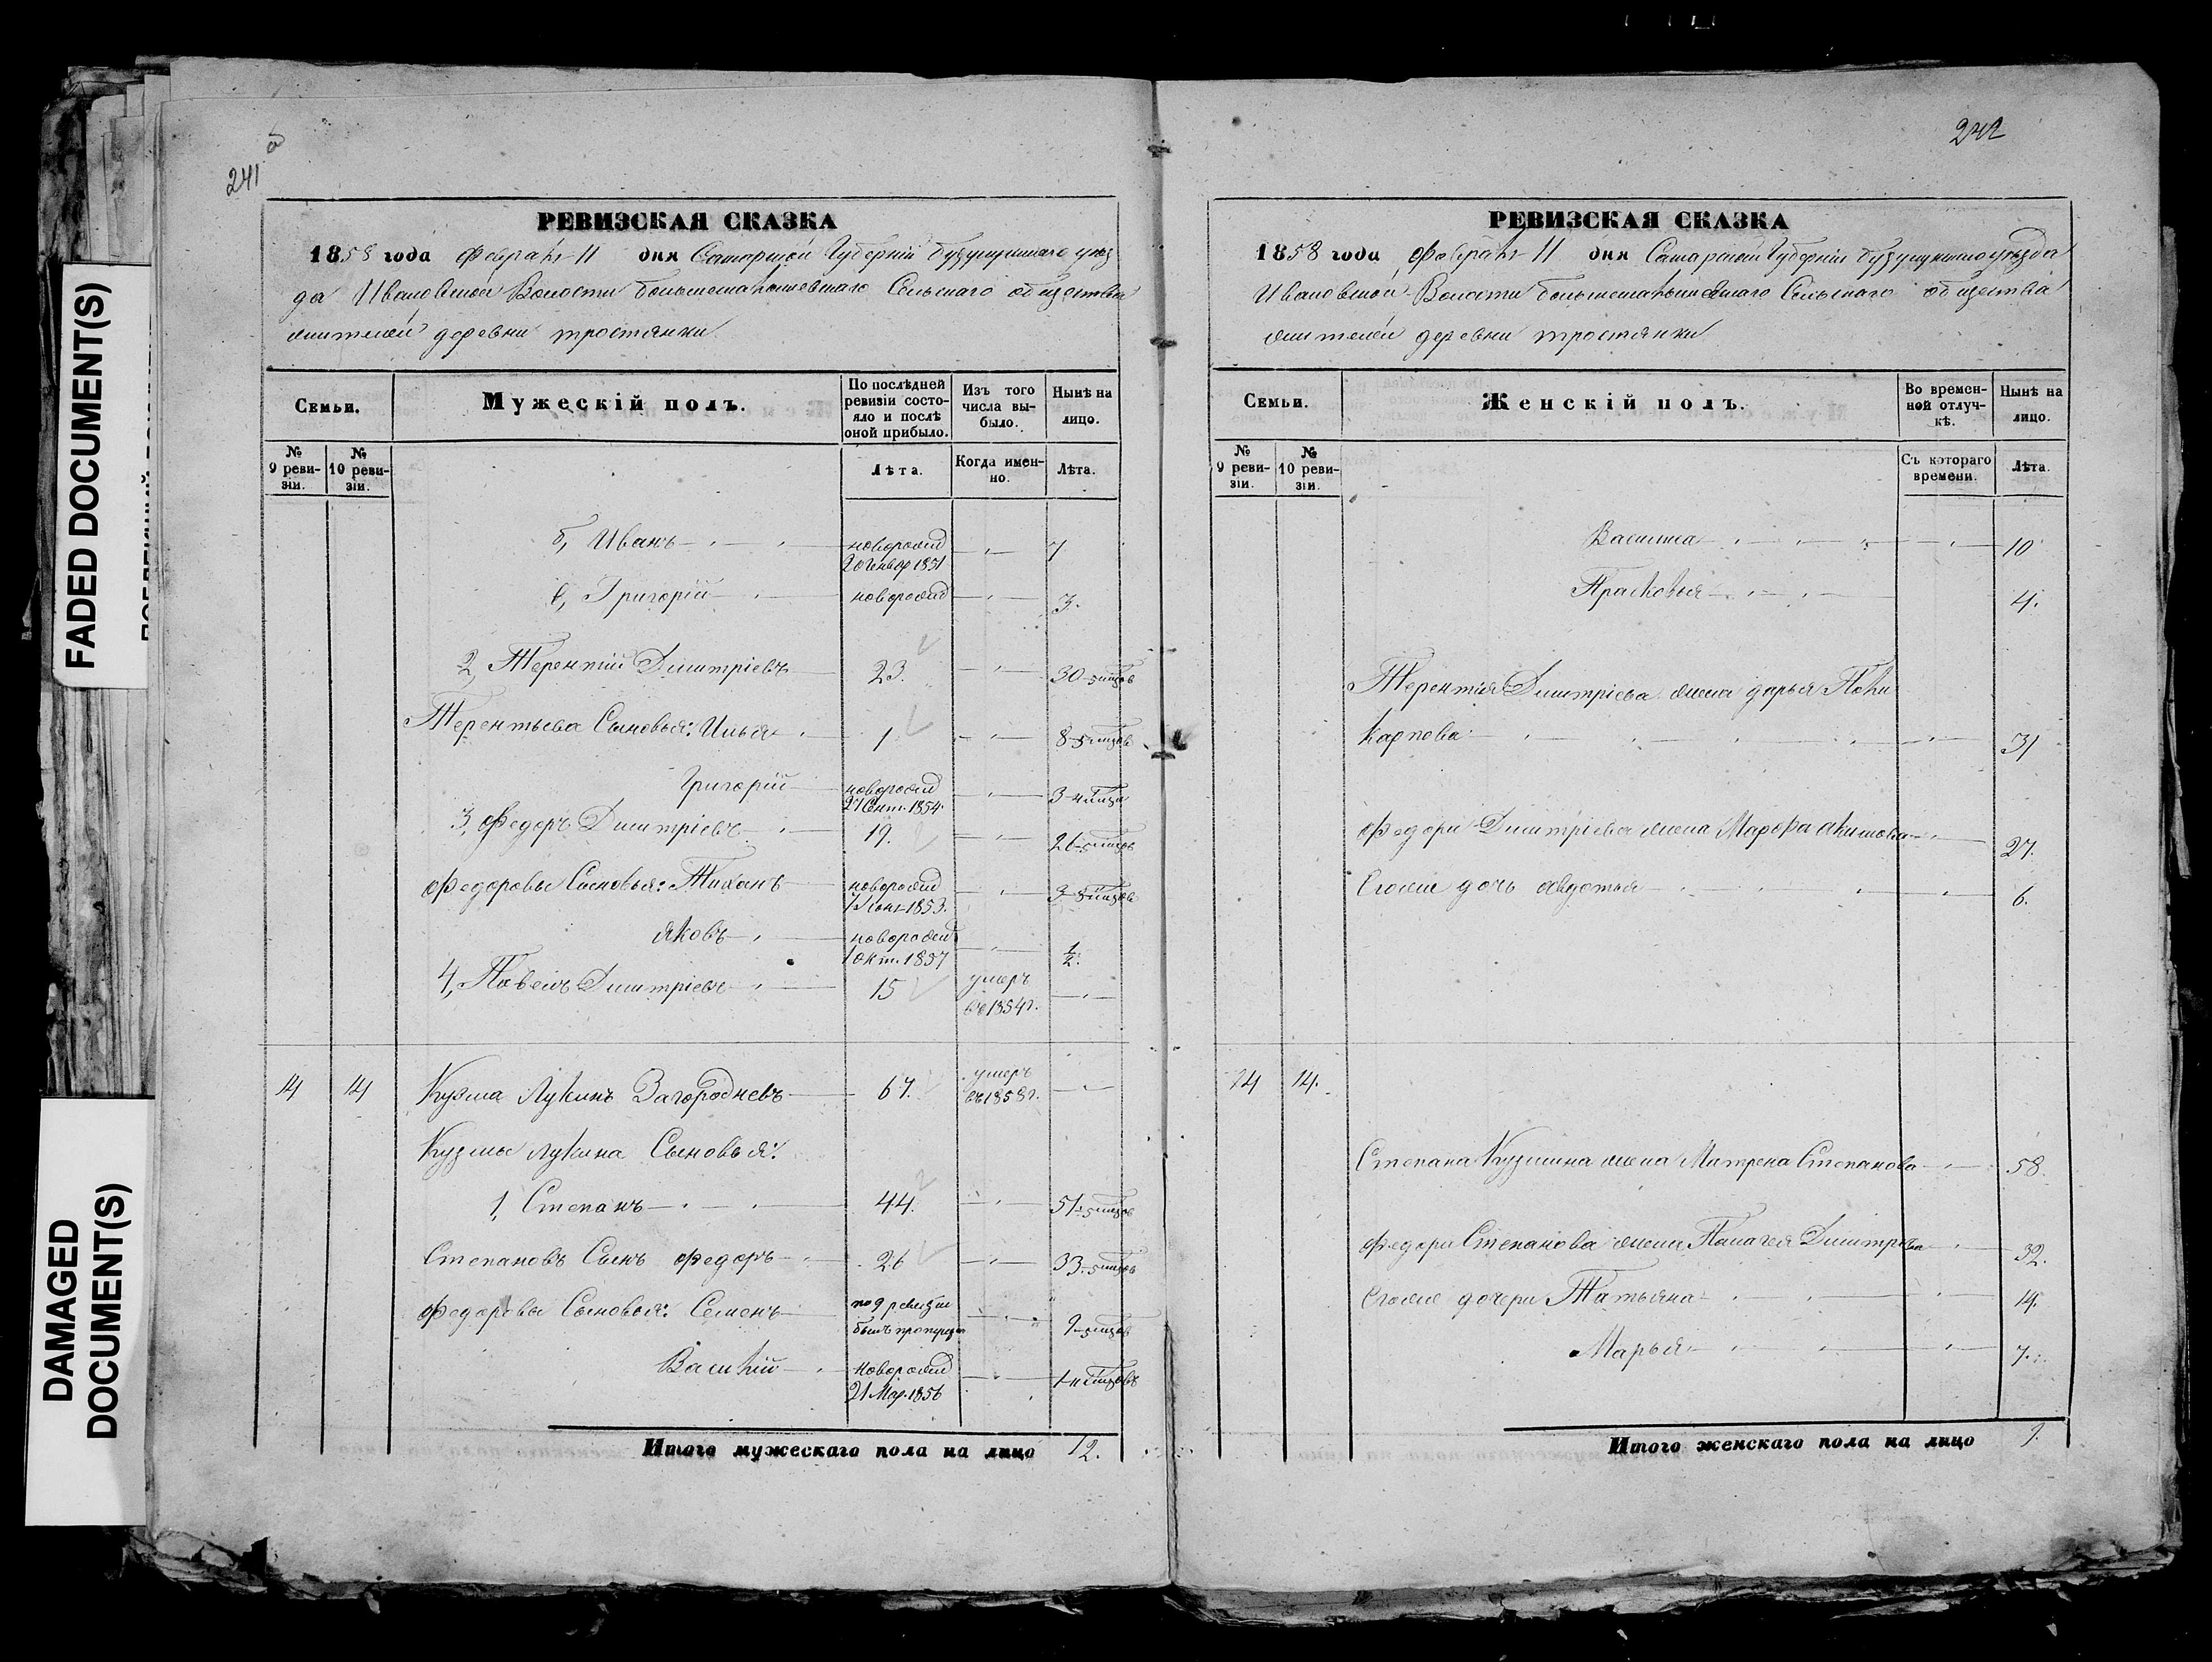 FADED DOCUMENT(S)
DAMAGED
DOCUMENT(S)
241
РЕВИЗСКАЯ СКАЗКА
1858 года Февраля 11 дня Самарской Губерніи Бузулукскаго уѣз
да Ивановской Волости Сельскаго общества
жителей деревни Тростянки
Семьи.
Мужескій полъ.
По послѣдней ревизіи состояло и послѣ оной прибыло.
Изъ того числа выбыло.
Нынѣ на лицо.
№ 9 ревизіи.
№ 10 ревизіи.
Лѣта.
Когда именно.
Лѣта.
б, Иванъ новорожд 7
20 Генвар 1851
в, Григорій новорожд 3.
2, Терентій Дмитріевъ 23. 30-5 мѣцов
Терентьева Сыновья: Илья 1 8-5 мѣцов
Григорій новорожд 3-4 мѣца
27 Сент. 1854.
3, Федоръ Дмитріевъ 19. 26-5 мѣцов
Федоровы Сыновья: Тихонъ новорожд
1853.
Яковъ новорожд 1/2.
1 Окт. 1857
4, Павелъ Дмитріевъ 15 умеръ
въ 1854 г.
14 14 Кузма Лукинъ Загородневъ 67. умеръ
въ 1858 г.
Кузмы Лукина Сыновья:
1, Степанъ 44. 51-5 мѣцов
Степановъ Сынъ Федоръ 26 33-5 мѣцов
Федоровы Сыновья: Семенъ по 9 ревизіи 9-5 мѣцов
былъ пропущен
Василій новорожд 1-11 мѣцовъ
21 Мар. 1856
Итого мужескаго пола на лицо 12.
242
РЕВИЗСКАЯ СКАЗКА
1858 года Февраля 11 дня Самарской Губерніи Бузулукскаго уѣзда
Ивановской Волости Сельскаго общества
жителей деревни Тростянки
Семьи.
Женскій полъ.
Во временной отлучкѣ.
Нынѣ на лицо.
№ 9 ревизіи.
№ 10 ревизіи.
Съ котораго времени.
Лѣта.
Василиса 10
Прасковья 4.
Терентія Дмитріева жена Дарья Поли
карпова 31
Федора Дмитріева жена Марфа Акимова 27.
Егоже дочь Авдотья 6.
14 14.
Степана Кузмина жена Матрена Степанова 58.
Федора Степанова жена Палагея Дмитріева 32.
Егоже дочери Татьяна 14.
Марья 7.
Итого женскаго пола на лицо 9.